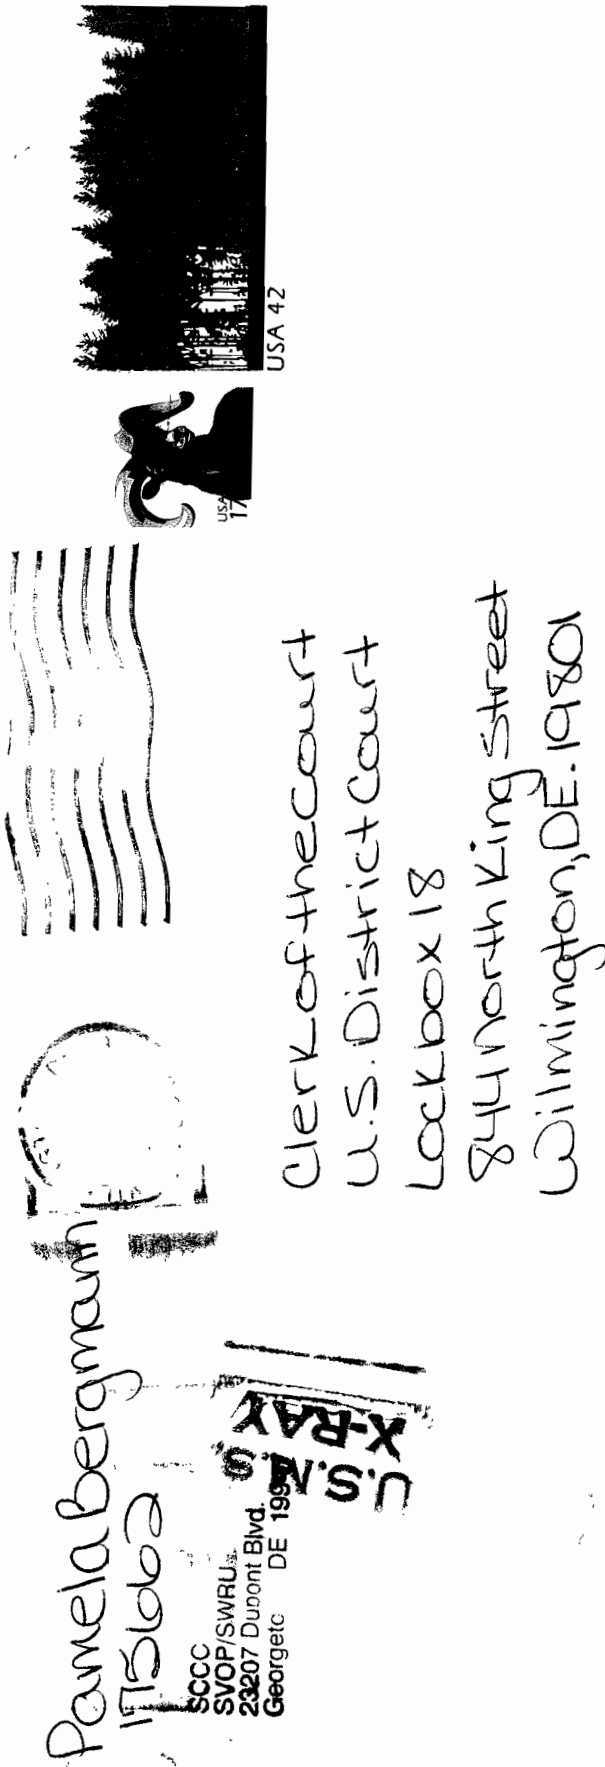 Pamela Bergmann
175662
SCCC
SVOP/SWRU
23207 Dupont Blvd.
DE
U.S.M.S.
X-RAY
USA
17
USA 42
Clerk of the Court
U.S. District Court
Lockbox 18
844 North King Street
Wilmington, DE. 19801